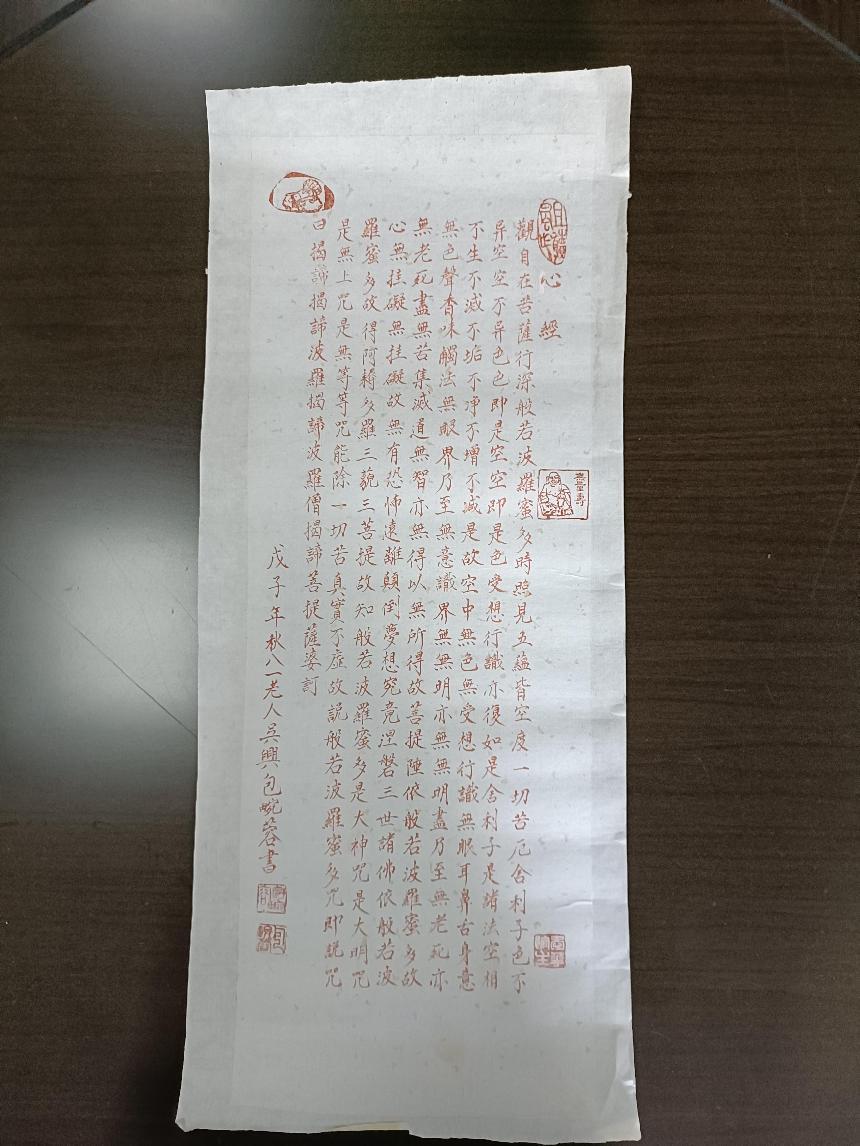 心經
觀自在菩薩行深般若波羅蜜多時照見五蘊皆空度一切苦厄舍利子色不
异空空不异色色即是空空即是色受想行識亦復如是舍利子是諸法空相
不生不滅不垢不净不增不減是故空中無色無受想行識無眼耳鼻舌身意
無色聲香味觸法無眼界乃至無意識界無無明亦無無明盡乃至無老死亦
無老死盡無苦集滅道無智亦無得以無所得故菩提薩依般若波羅蜜多故
心無挂礙無挂礙故無有恐怖遠離顛倒夢想究竟涅磐三世諸佛依般若波
羅蜜多故得阿耨多羅三藐三菩提故知般若波羅蜜多是大神咒是大明咒
是無上咒是無等等咒能除一切苦真實不虛故說般若波羅蜜多咒即說咒
曰揭諦揭諦波羅揭諦波羅僧揭諦菩提薩婆訶
戊子年秋八一老人吳興包畹蓉書